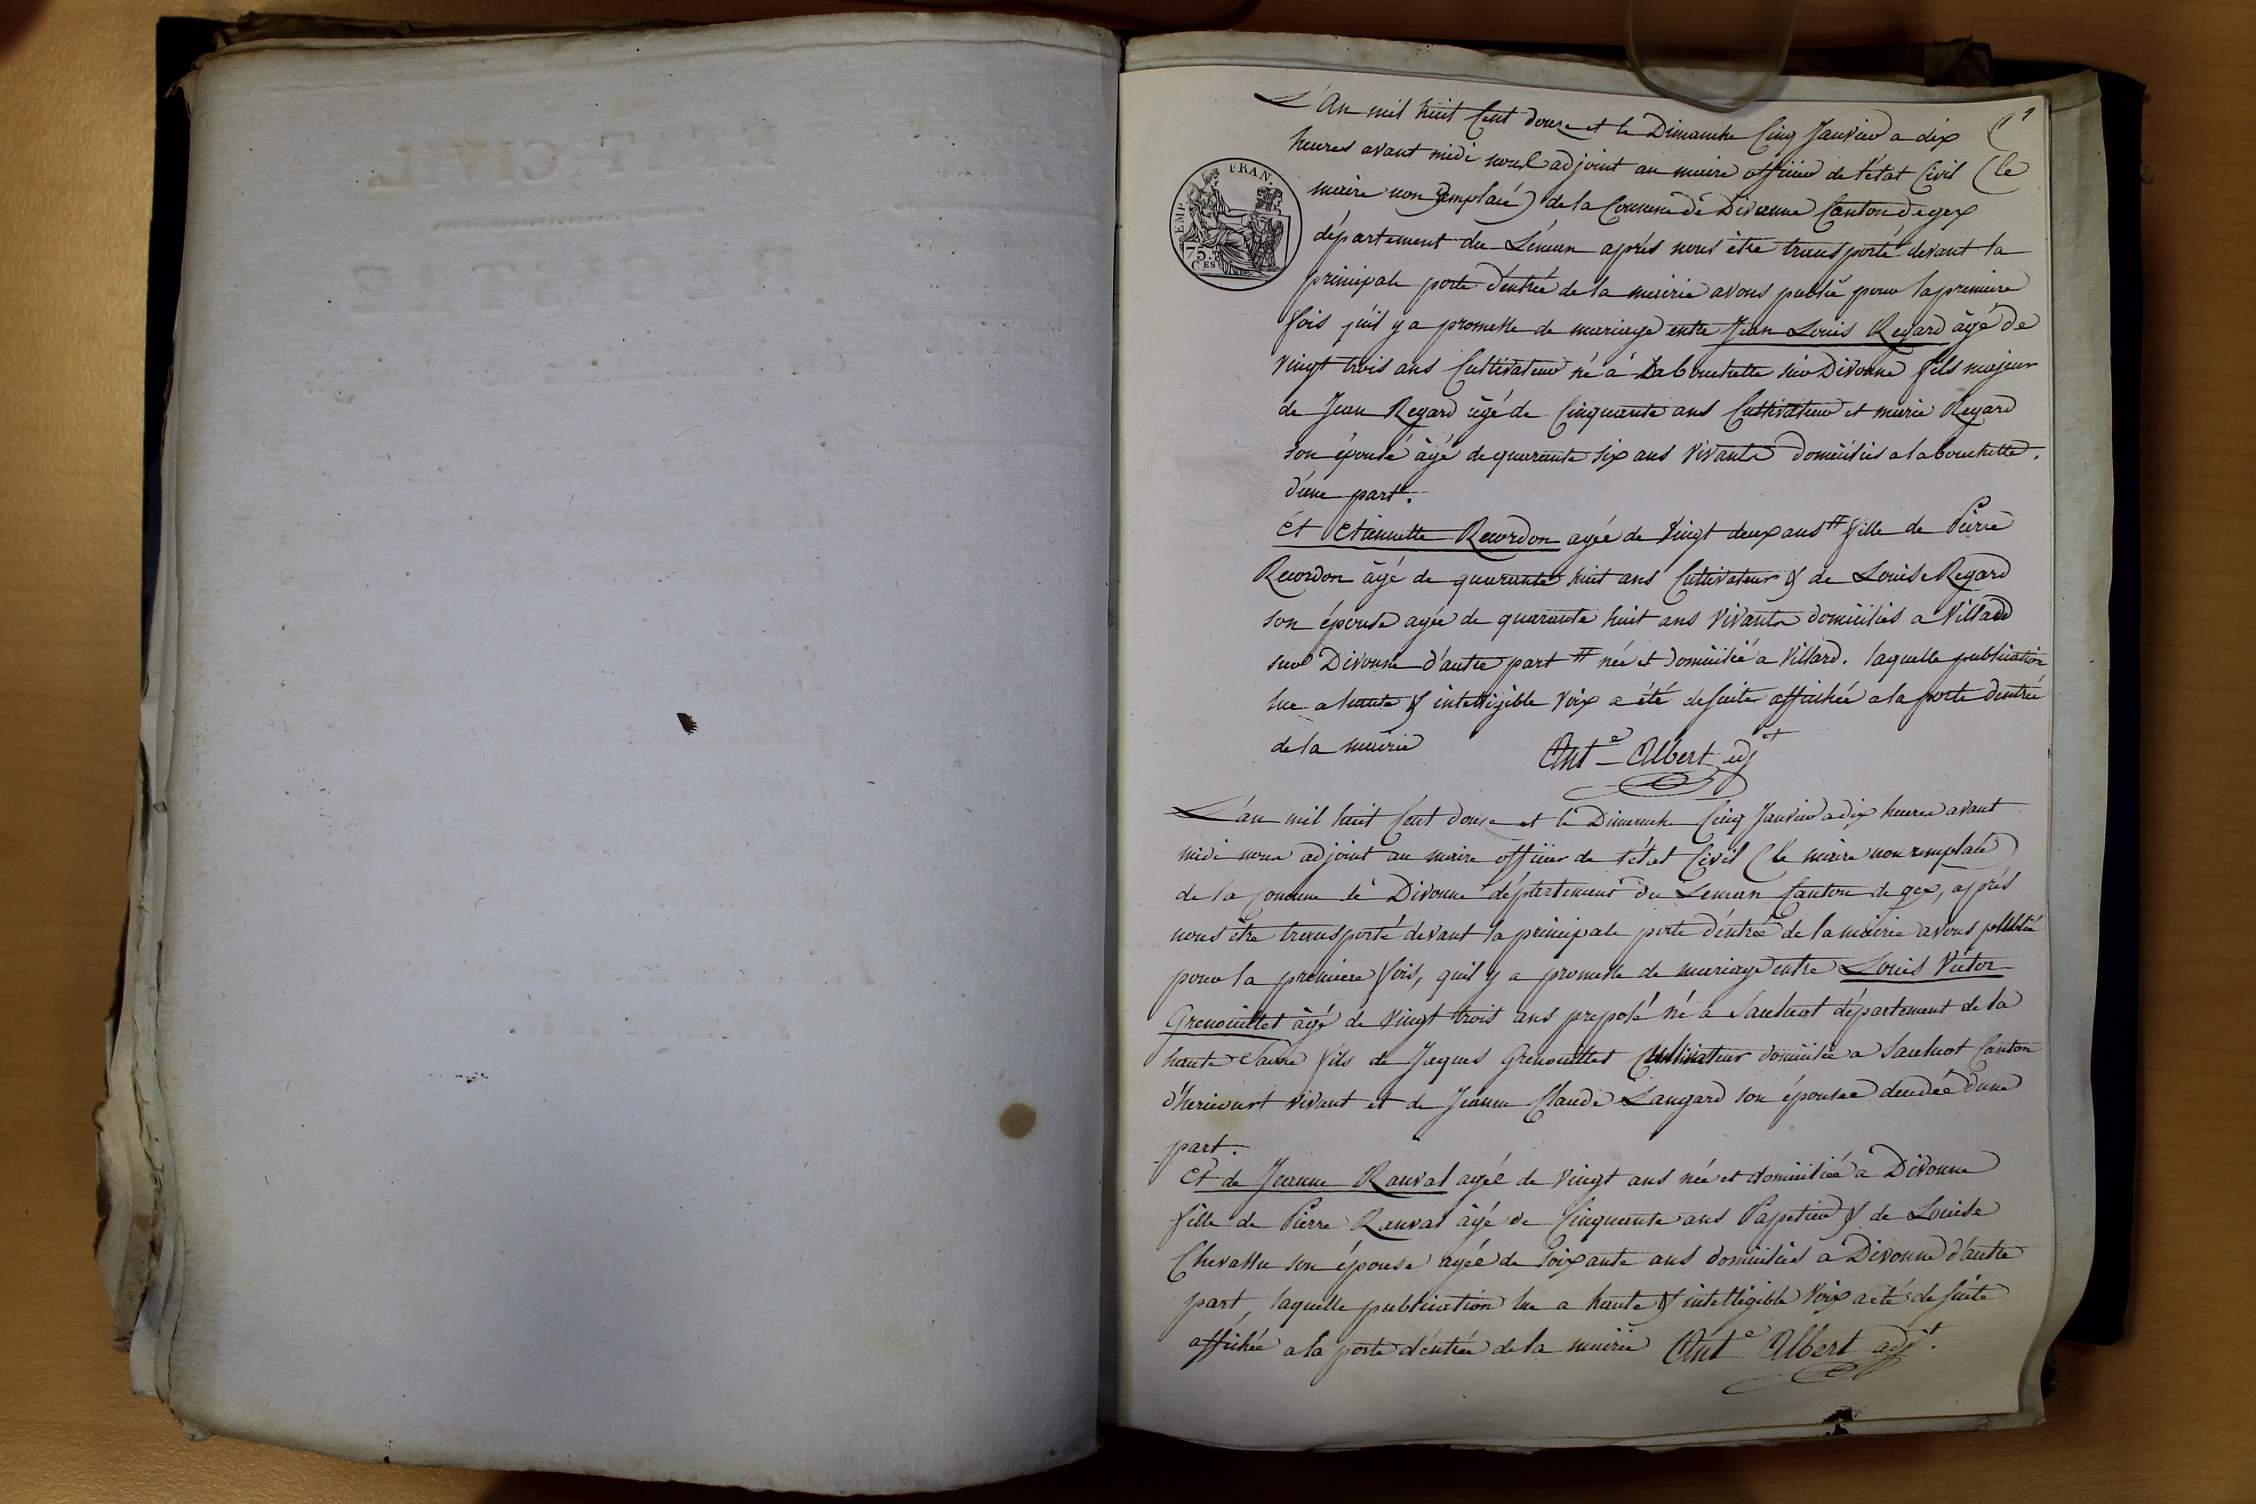 L'An mil huit Cent douze et le Dimanche Cinq Janvier a dix
heures avant midi nous adjoint au maire officier de l'état Civil (le
maire non remplacé) de la Commune de Divonne Canton de gex
département du Léman aprés nous être transporté devant la
principale porte d'éntrée de la mairie avons publié pour la premiere
fois qu'il y a promesse de mariage entre Jean Louis Regard âgé de
vingt trois ans Cultivateur né à Labouchette sur Divonne fils majeur
de Jean Regard âgé de Cinquante ans Cultivateur et marie Regard
son épouse âgé de quarante six ans vivants domiciliés a labouchette.
d'une part.
Et Etiennette Recordon agée de vingt deux ans # fille de Pierre
Recordon âgé de quarante huit ans Cultivateur & de Louise Regard
son épouse agée de quarante huit ans vivants domiciliés a Villard
sur Divonne d'autre part # née et domiciliée a Villard. laquelle publication
lue a haute & intelligible voix a été desuite affichée a la porte d'entrée
de la mairie
Ant.e Albert adjt
FRAN.
EMP.
75.
CES
L'an mil huit Cent douze et le Dimanche Cinq Janvier a dix heures avant
midi nous adjoint au maire officier de l'état Civil (le maire non remplacé)
de la Commune de Divonne département du Leman Canton de gex, aprés
nous être transporté devant la principale porte d'éntrée de la mairie avons publié
pour la premiere fois, quil y a promesse de mariage entre Louis Victor
Grenouillet âgé de vingt trois ans preposé né a Saulnot département de la
haute Saone fils de Jaques Grenouillet Cultivateur domicilié a Saulnot Canton
d'hericourt vivant et de Jeanne Claude Laugard son épousee decedée d'une
part.
Et de Jeanne Ranval agée de vingt ans née et domiciliée a Divonne
fille de Pierre Ranval âgé de Cinquante ans Papetier & de Louise
Chevassu son épouse agée de soixante ans domiciliés a Divonne d'autre
part, laquelle publication lue a haute & intelligible voix a eté de suite
affichée a la porte d'éntrée de la mairie Ant.e Albert adjt.